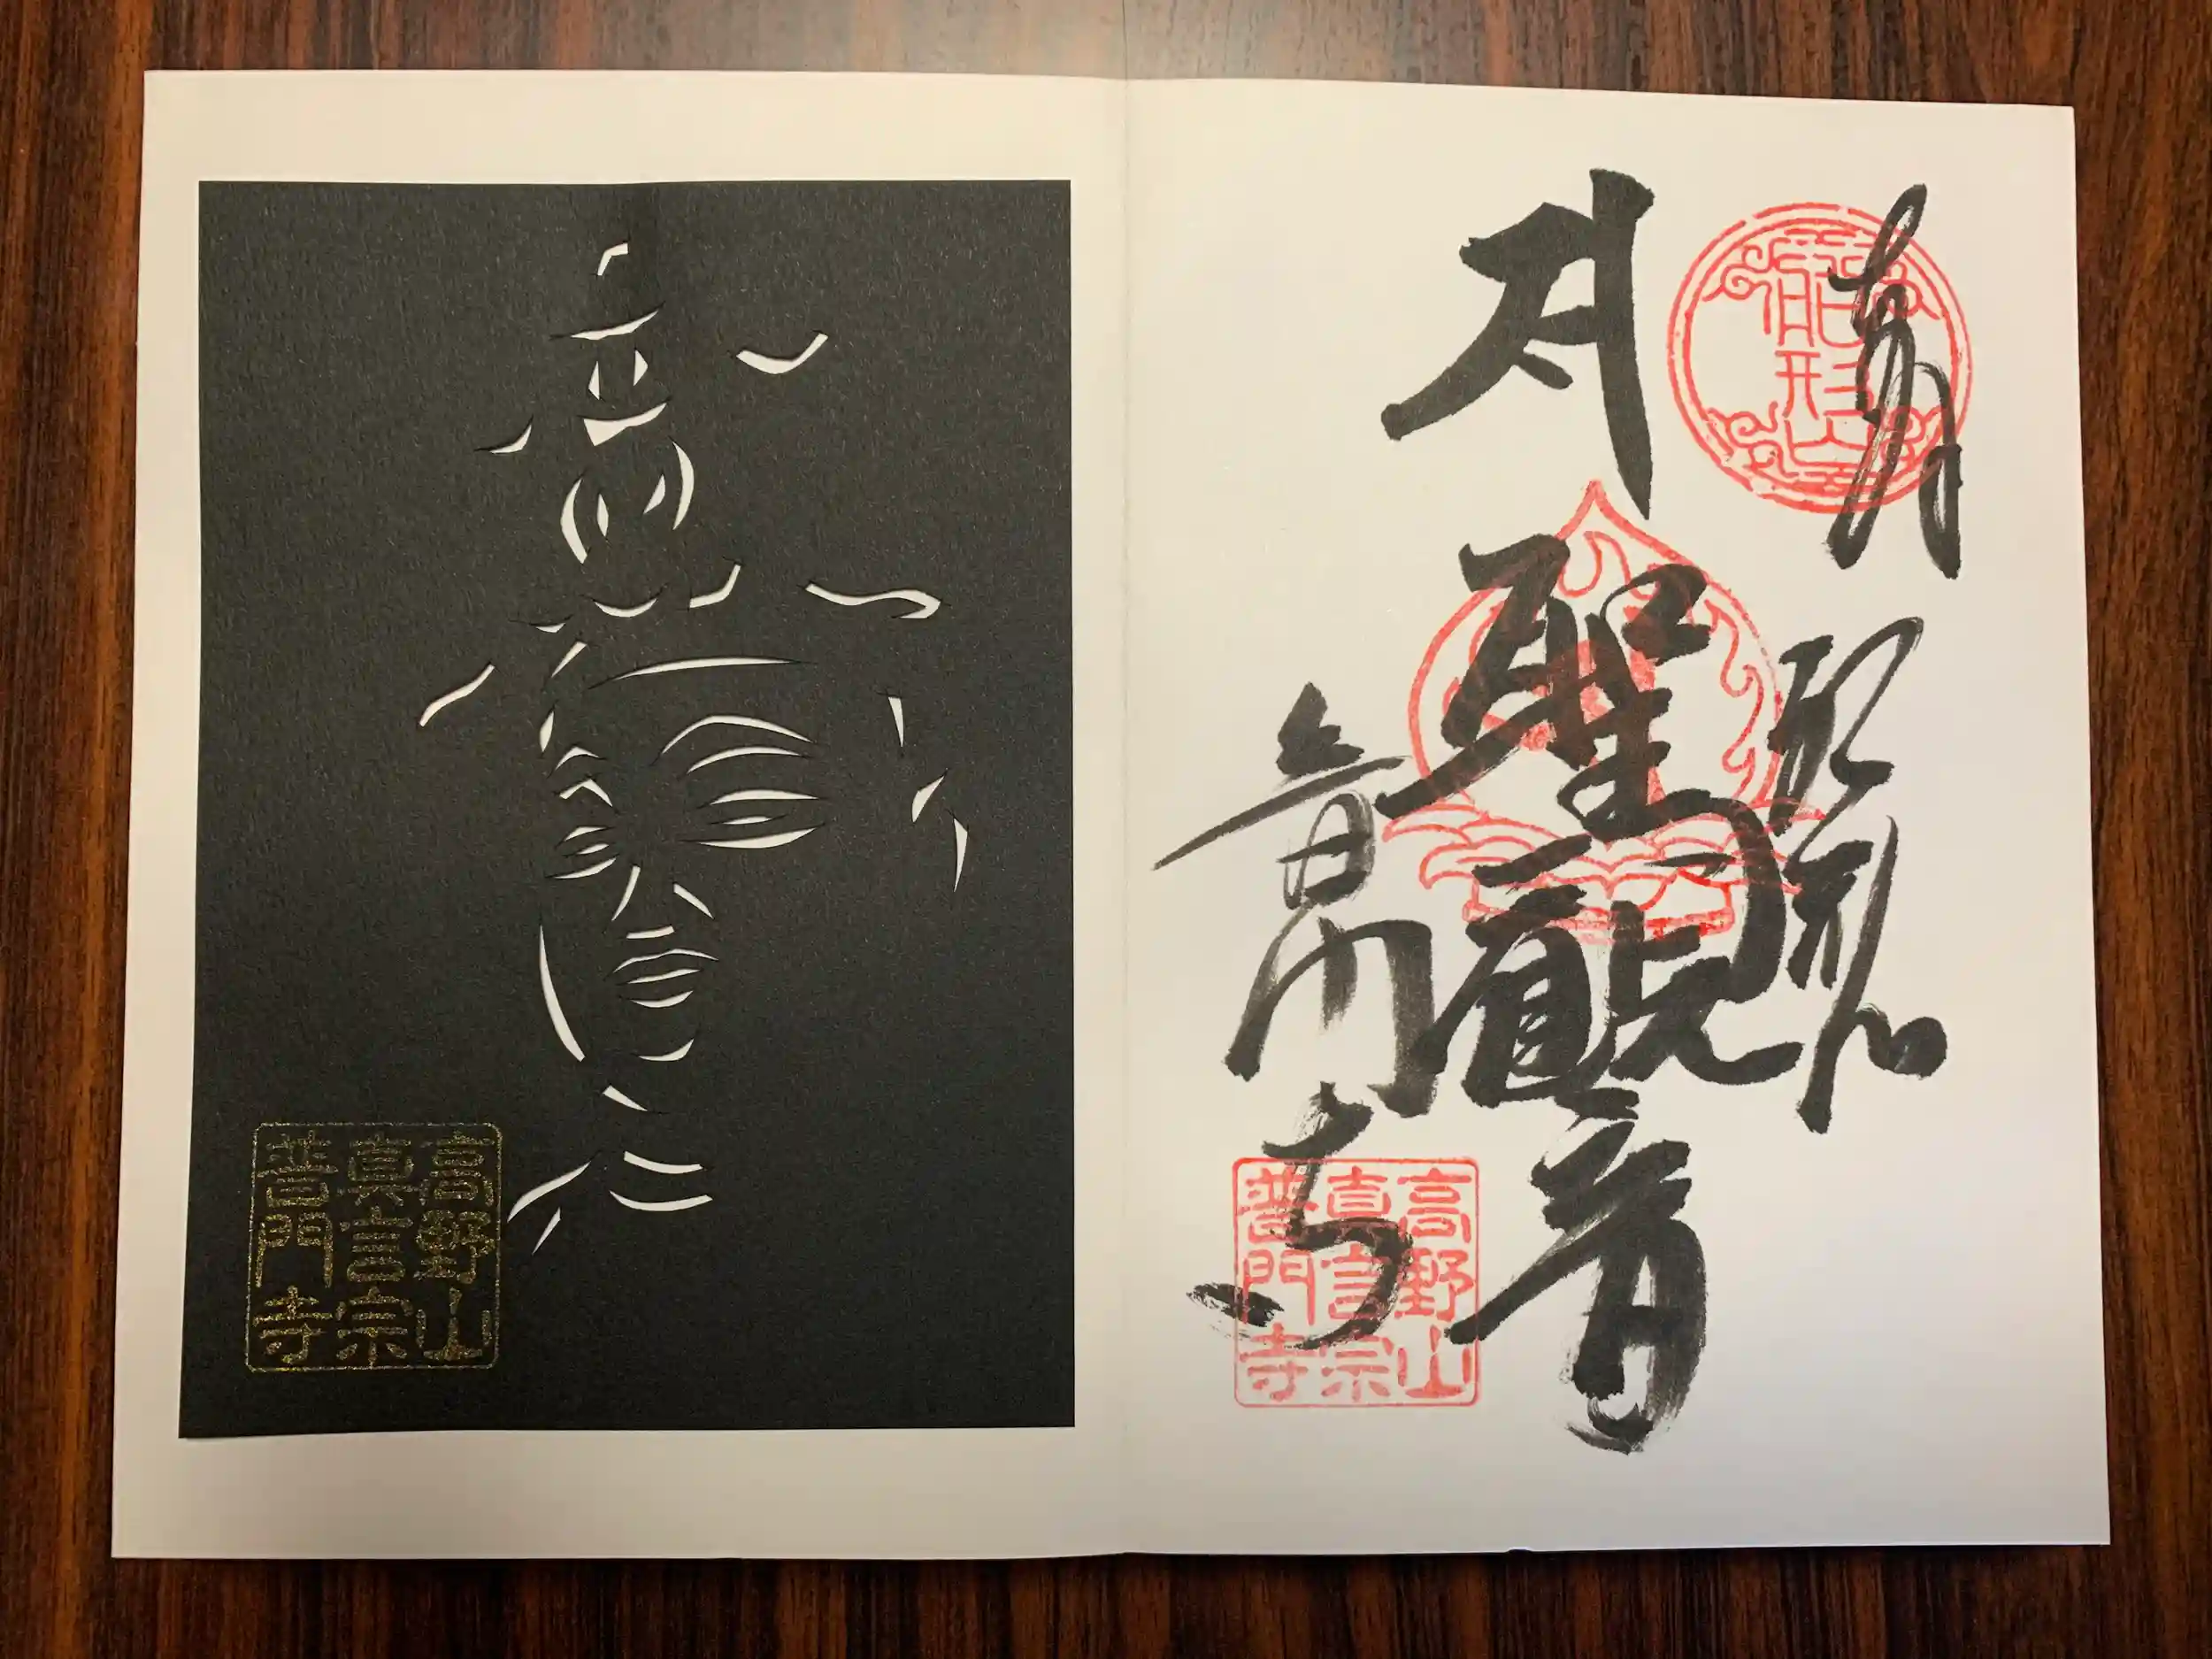 𑖭
聖観音
普門寺
高野山
真言宗
普門寺
高野山
真言宗
普門寺